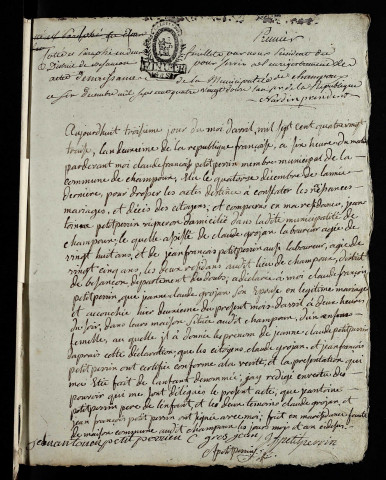 Premier
Cotté et Paraphé
feuillets par nous Président du
District de Besançon pour servir
actes de naissance de la Municipalité de Champoux
ce premier Decembre mil sept cent quatre vingt douze l'an 1er de la Republique
Aujourdhuit troisieme jour du moi davril mil sept cent quatre vingt
treise, lan deuxieme de la republique française, a six heure du matin
pardevant moi claude françois petitperrin membre municipal de la
commune de champoux, élu le quatorse décembre de lannée
dernière, pour dresser les actes déstinés à constater les naissances
mariages, et décès des citoyens, et comparus en ma résidence, jean
toinne petitperrin vigneron domicilié dans ladite municipalité de
champoux, le quelle assisté de claude grosjan laboureur agée de
vingt huit ans, et de jean françois petitperrin aussi laboureur, agée de
vingt cinq ans, les deux résidans audit lieu de champoux, district
de besançon département du doubs, a déclaré a moi claude françois
petitperrin, que jeanne claude grosjan son épouse en légitime mariage
est accouché hier deuxieme du present mois davril à deux heures
du soir, dans leur maison située audit champoux, d'un enfans
femelle, au quelle il à donné le prenom de jeanne claude petitperrin
dapres cette déclaration, que les citoyens claude grosjan, et jean françois
petitperrin ont certifié conforme a la verité, et la présentation qui
moi été fait de lenfant denommé, jay redigé en vertu des
pouvoir qui me sont délégués le present acte, que jeantoine
petitperrin pere de l'enfant, et les deux temoins claude grosjan, et
jean françois petitperrin ont signé avec moi; fait en
maison commune audit champoux les jours, mois et an cidessus
jean antoine petit perrin C grosjean petitperrin
petitperrin